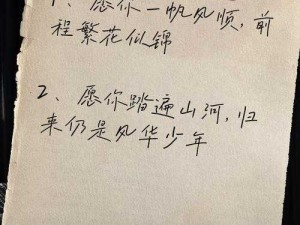 1、愿你一帆风顺,前
程繁花似锦
2、愿你踏遍山河,归
来仍是风华少年